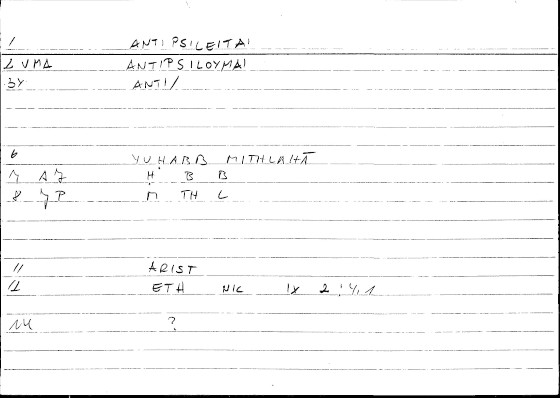 1 ANTIPSILEITAI
2 VMA ANTIPSILOYMAI
3Y ANTI/
6 YUḤABB MITHLAHĀ
7 AJ Ḥ B B
8 JP M TH L
11 ARIST
12 ETH NIC IX 2 : 4,1
14 ?